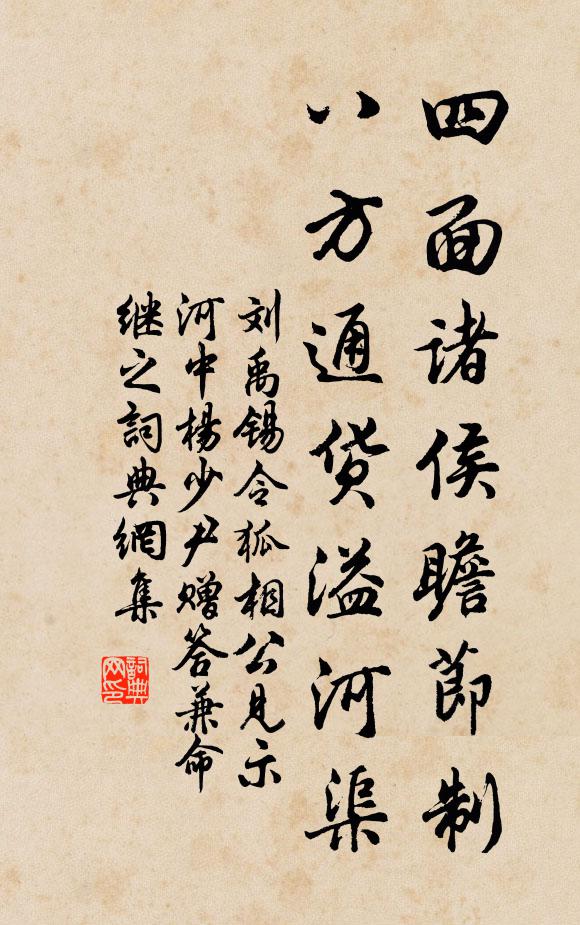 四面诸侯瞻节制
八方通货溢河渠
刘禹锡令狐相公见示
河中杨少尹赠答兼命
继之詞典網集
詞典网印